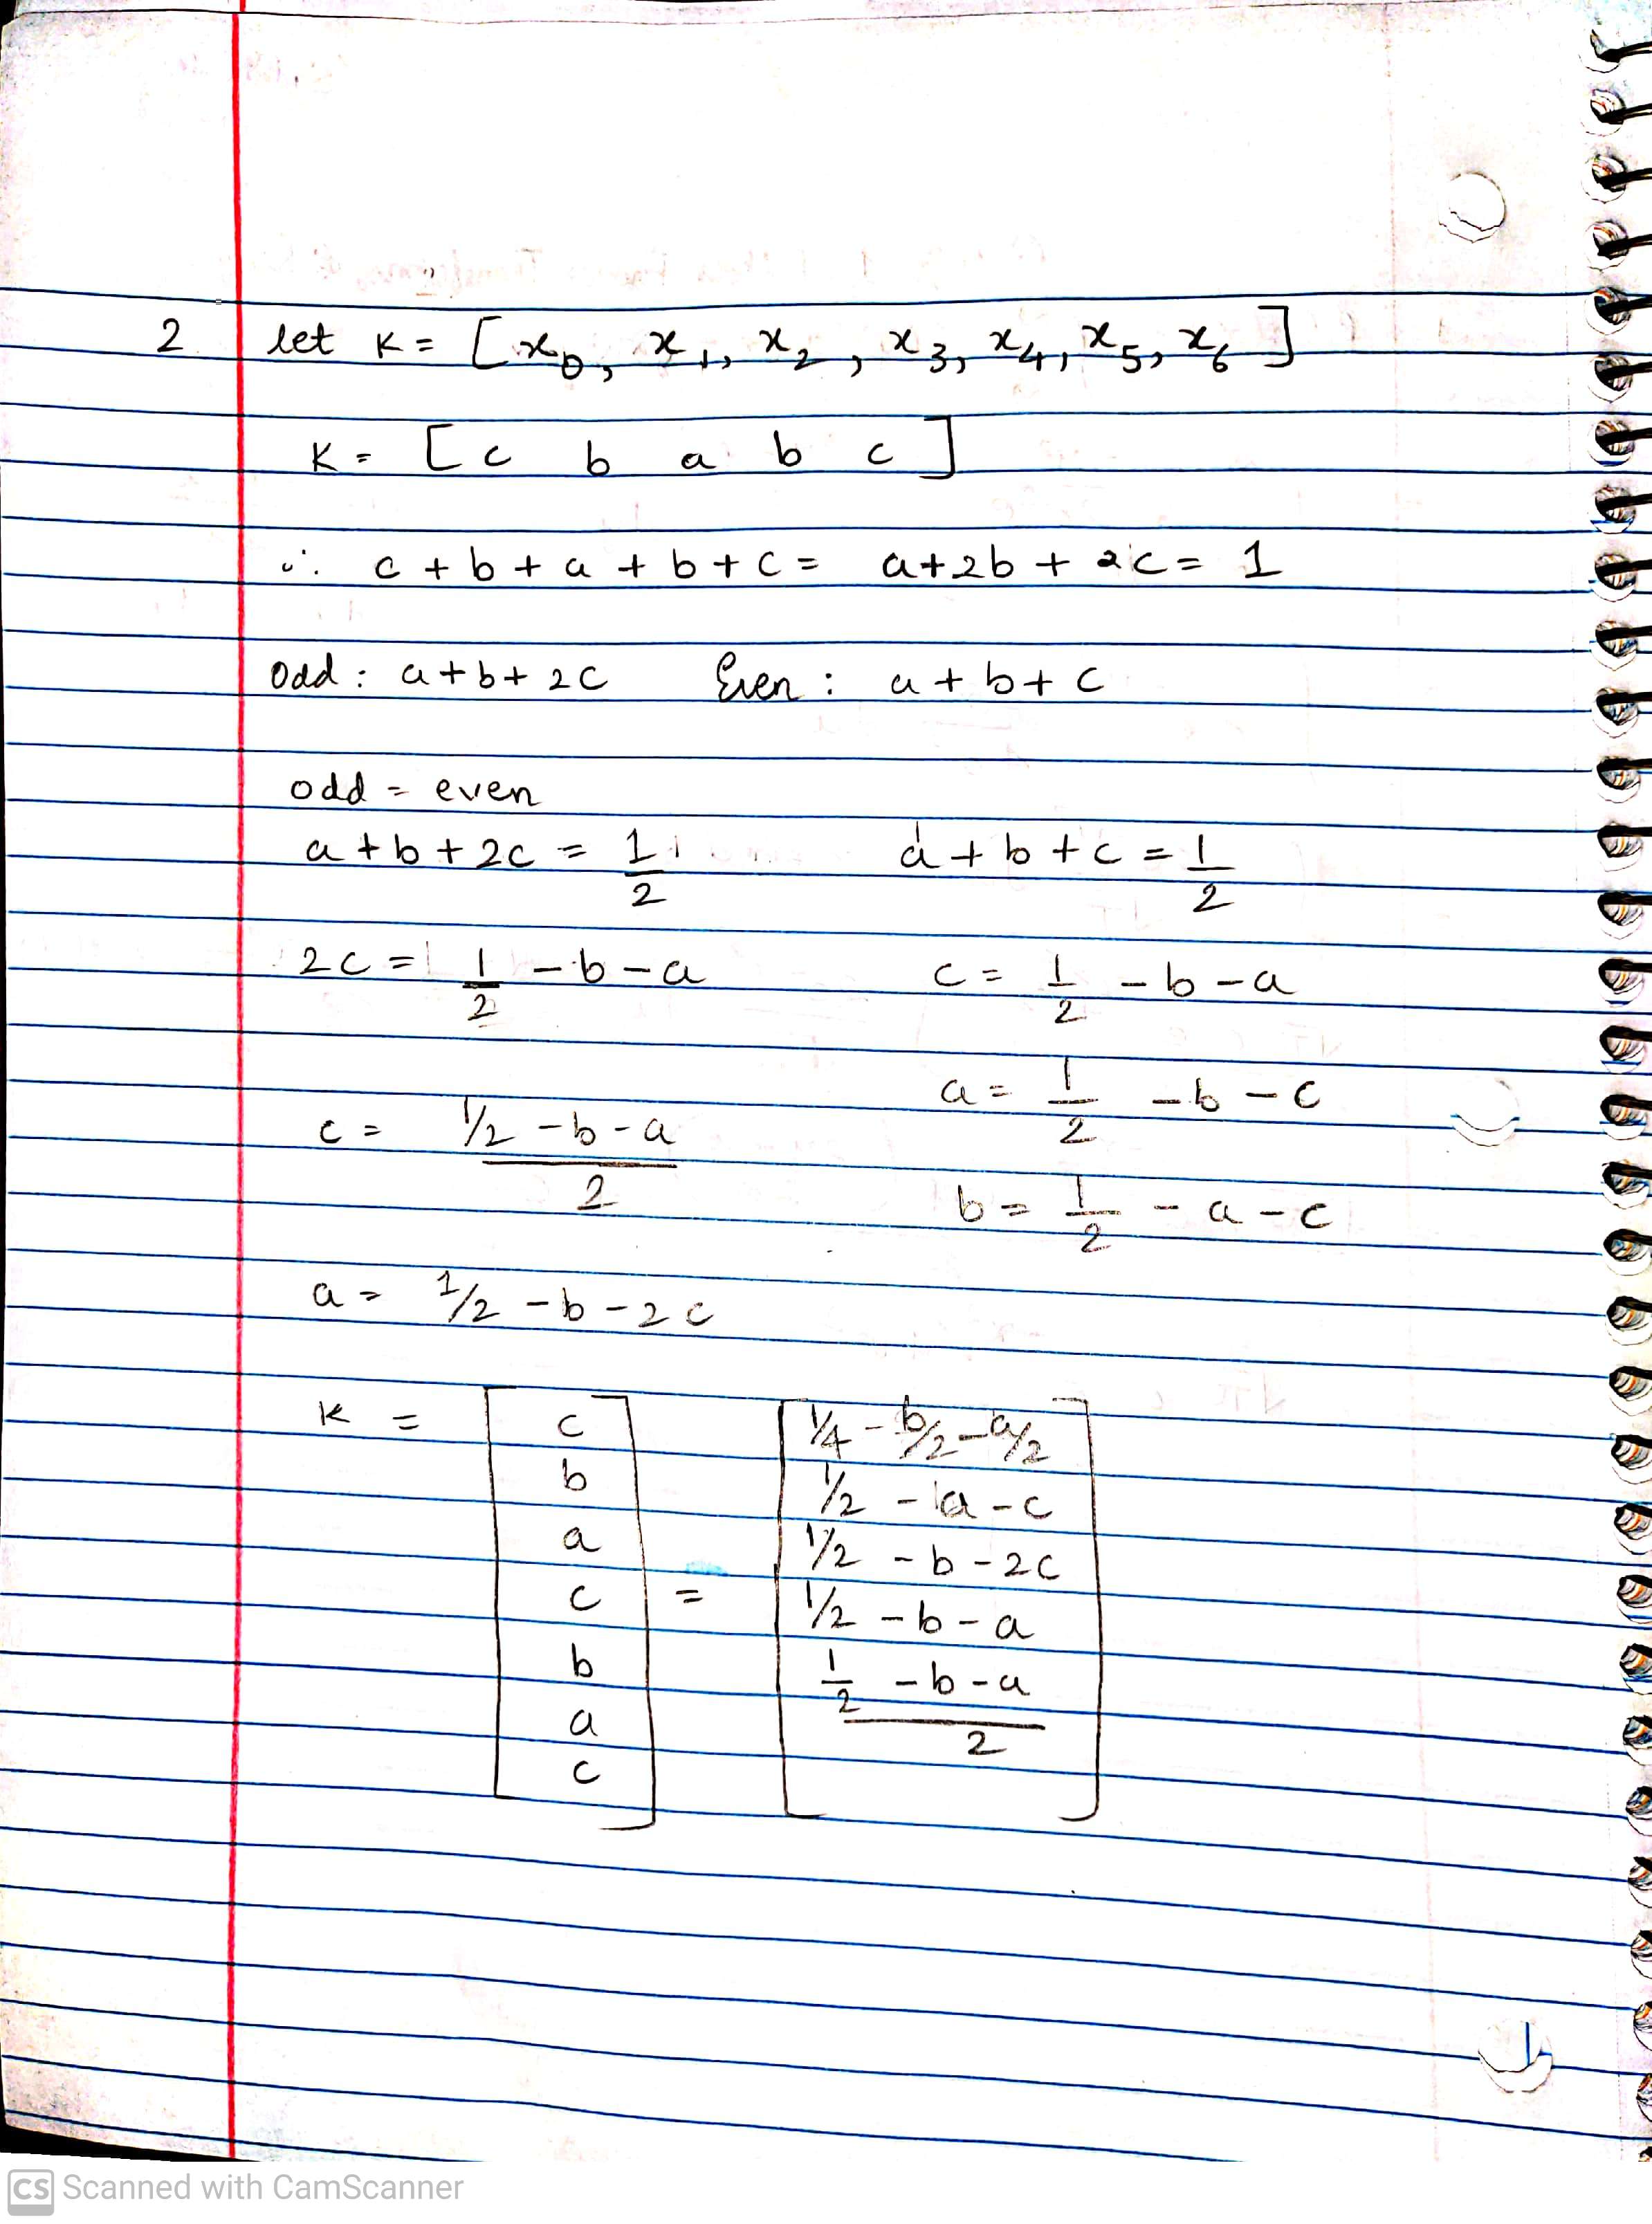 2 let K = [x0, x1, x2, x3, x4, x5, x6]
K = [c b a b c]
∴ c + b + a + b + c = a + 2b + 2c = 1
Odd : a + b + 2c Even : a + b + c
odd = even
a + b + 2c = 1/2 a + b + c = 1/2
2c = 1/2 - b - a c = 1/2 - b - a
a = 1/2 - b - c
c = (1/2 - b - a)/2
b = 1/2 - a - c
a = 1/2 - b - 2c
K = [c = [1/4 - b/2 - a/2
b 1/2 - a - c
a 1/2 - b - 2c
c 1/2 - b - a
b (1/2 - b - a)/2
a
c] ]
CS Scanned with CamScanner